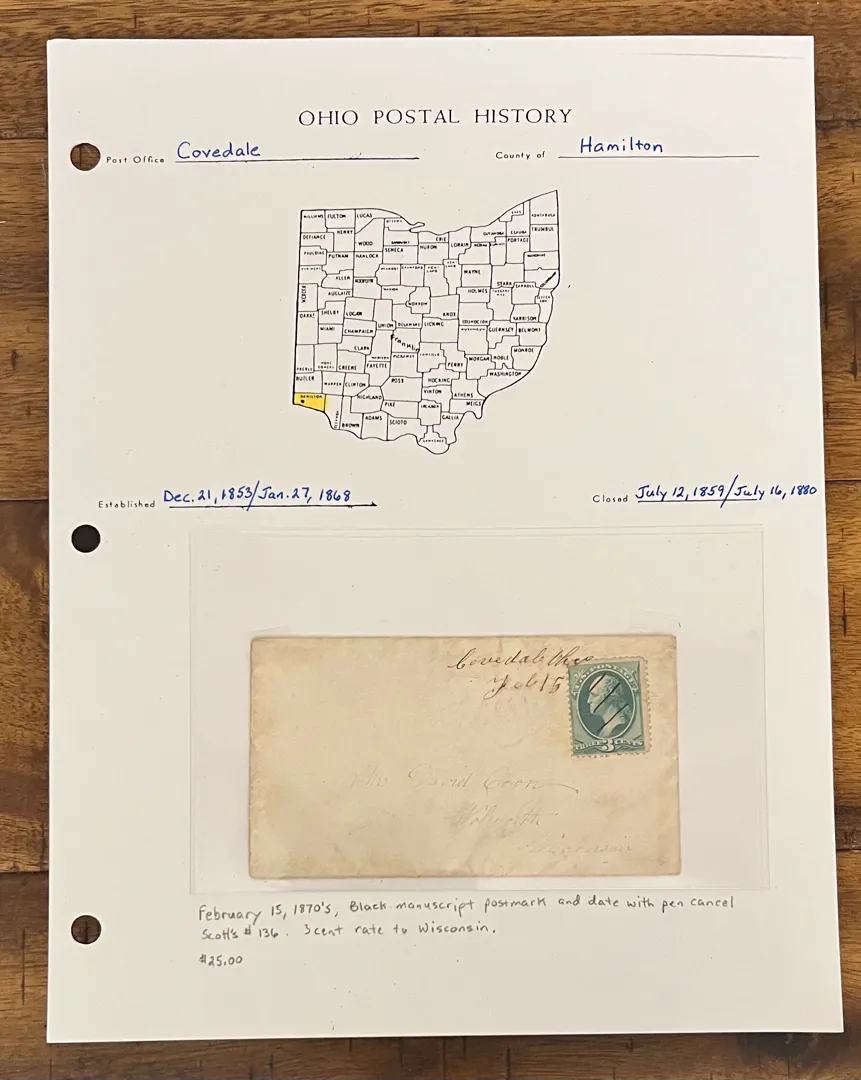 OHIO POSTAL HISTORY
Post Office Covedale County of Hamilton
WILLIAMS FULTON LUCAS OTTAWA LAKE ASHTABULA
DEFIANCE HENRY WOOD SANDUSKY ERIE LORAIN CUYAHOGA GEAUGA TRUMBUL
PAULDING PUTNAM HANCOCK SENECA HURON MEDINA PORTAGE
ALLEN WAYNE STARK CARROLL
MERCER AUGLAIZE HARDIN MARION MORROW HOLMES
DARKE SHELBY LOGAN UNION DELAWARE KNOX COSHOCTON HARRISON
MIAMI CHAMPAIGN LICKING GUERNSEY BELMONT
CLARK Franklin MONROE
PREBLE GREENE FAYETTE PICKAWAY PERRY MORGAN NOBLE
BUTLER WARREN CLINTON ROSS HOCKING WASHINGTON
HAMILTON HIGHLAND PIKE VINTON ATHENS
BROWN ADAMS SCIOTO GALLIA MEIGS
LAWRENCE
Established Dec. 21, 1853/Jan. 27, 1868 Closed July 12, 1859/July 16, 1880
Covedale Ohio
Feb 15
U.S. POSTAGE
THREE 3 CENTS
Mrs David Coon
Walworth
Wisconsin
February 15, 1870's, Black manuscript postmark and date with pen cancel
Scott's # 136. 3 cent rate to Wisconsin.
$25.00